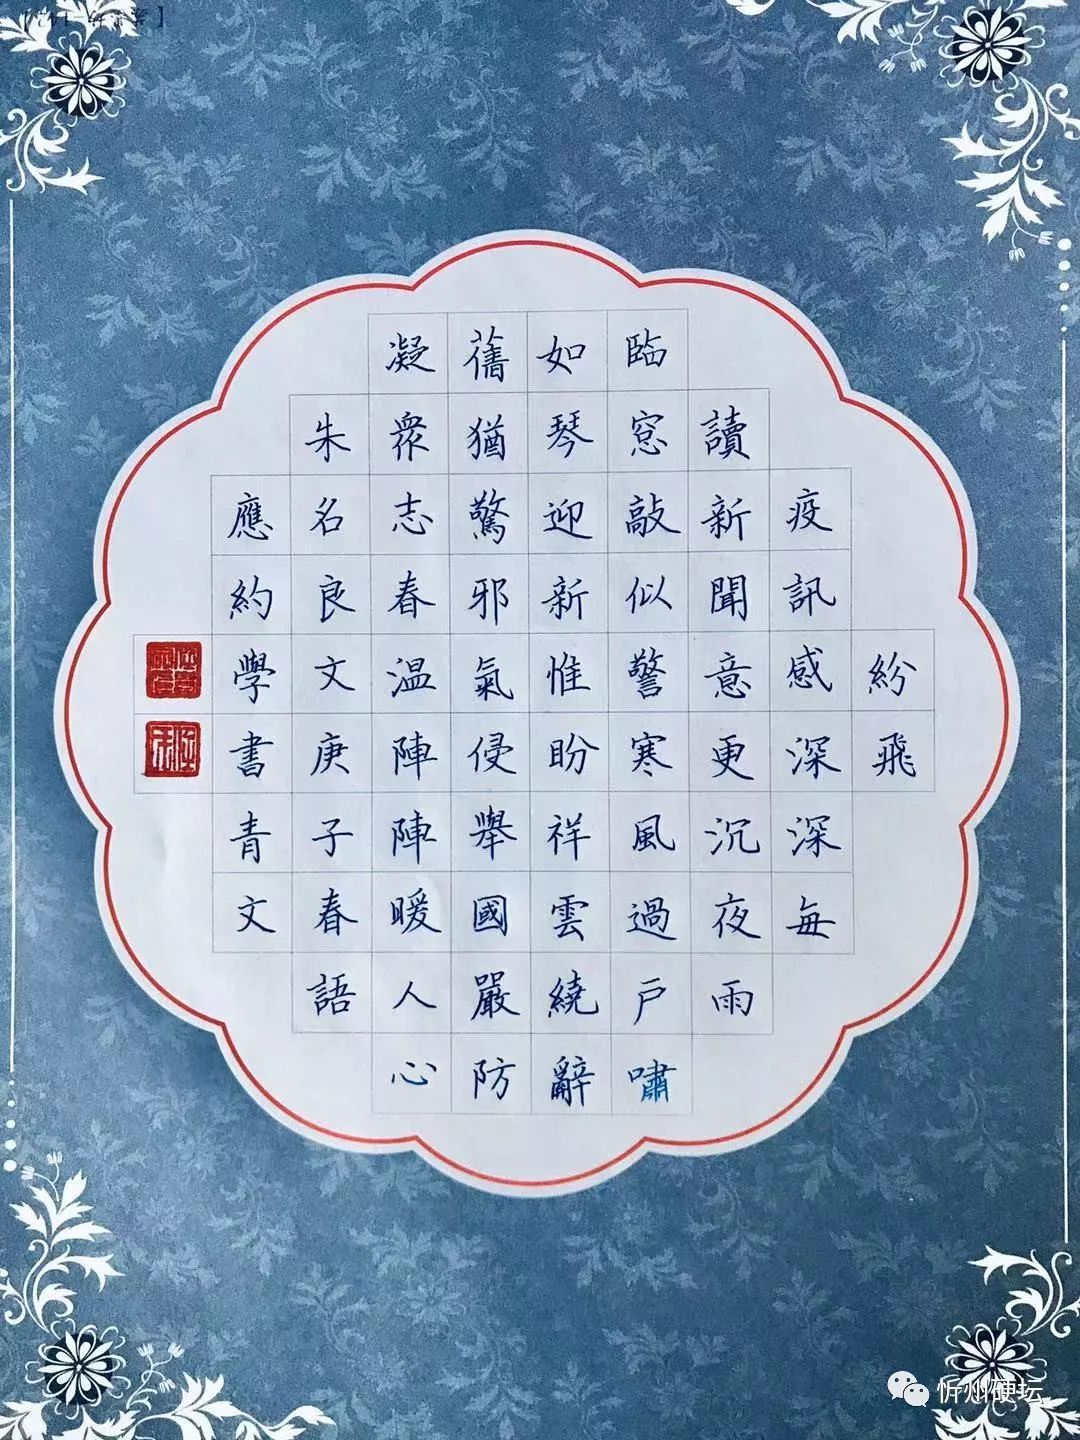 紛飛
疫訊感深深每
讀新聞意更沉夜雨
臨窓敲似警寒風過戶嘯
如琴迎新惟盼祥雲繞辭
舊猶驚邪氣侵舉國嚴防
凝衆志春温陣陣暖人心
朱名良文庚子春語
應約學書青文
忻州硬坛